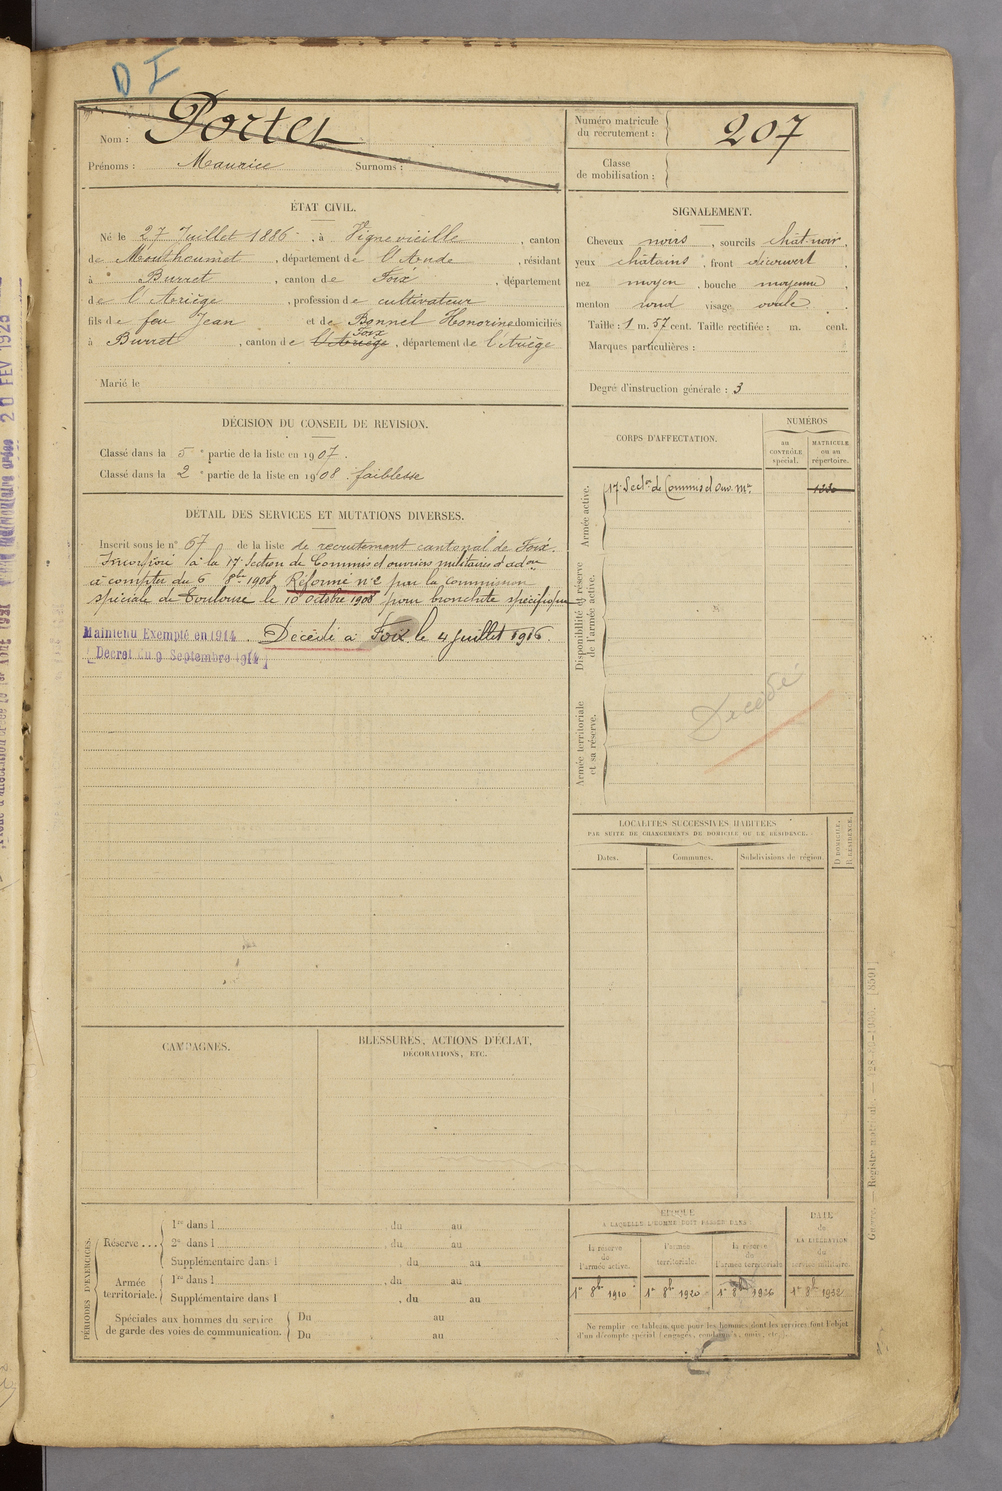 D I
Nom : Portes
Prénoms : Maurice Surnoms :
Numéro matricule
du recrutement : 207
Classe
de mobilisation :
ÉTAT CIVIL.
Né le 27 Juillet 1886, à Vignevieille, canton
de Mouthoumet, département de l'Aude, résidant
à Burret, canton de Foix, département
de l'Ariège, profession de cultivateur
fils de feu Jean et de Bonnel Honorine domiciliés
Foix
à Burret, canton de l'Ariège, département de l'Ariège
Marié le
SIGNALEMENT.
Cheveux noirs, sourcils chât-noir,
yeux châtains, front découvert,
nez moyen, bouche moyenne,
menton rond visage ovale
Taille : 1 m. 57 cent. Taille rectifiée : m. cent.
Marques particulières :
Degré d'instruction générale : 3
DÉCISION DU CONSEIL DE REVISION.
Classé dans la 5e partie de la liste en 1907.
Classé dans la 2e partie de la liste en 1908. faiblesse
DÉTAIL DES SERVICES ET MUTATIONS DIVERSES.
Inscrit sous le n° 67 de la liste de recrutement cantonal de Foix.
Incorporé à la 17e Section de Commis et ouvriers militaires d'adon
à compter du 6 8bre 1908. Réformé n°2 par la commission
spéciale de Toulouse le 10 octobre 1908 pour bronchite spécifique
Maintenu Exempté en 1914. Décédé à Foix le 4 juillet 1916.
[Décret du 9 Septembre 1914]
CORPS D'AFFECTATION.
NUMÉROS
au
CONTRÔLE
spécial.
MATRICULE
ou au
répertoire.
Armée active.
17e Secton de Commis et Ouv. Mres
Disponibilité et réserve
de l'armée active.
Armée territoriale
et sa réserve.
Décédé
LOCALITÉS SUCCESSIVES HABITÉES
PAR SUITE DE CHANGEMENTS DE DOMICILE OU DE RÉSIDENCE.
Dates. Communes. Subdivisions de région.
D. DOMICILE.
R. RÉSIDENCE.
CAMPAGNES.
BLESSURES, ACTIONS D'ÉCLAT,
DÉCORATIONS, ETC.
PÉRIODES D'EXERCICES.
Réserve ...
1re dans l , du au
2e dans l , du au
Supplémentaire dans l , du au
Armée
territoriale.
1re dans l , du au
Supplémentaire dans l , du au
Spéciales aux hommes du service
de garde des voies de communication.
Du au
Du au
ÉPOQUE
À LAQUELLE L'HOMME DOIT PASSER DANS
la réserve
de
l'armée active.
l'armée
territoriale.
la réserve
de
l'armée territoriale
DATE
de
LA LIBÉRATION
du
service militaire.
1er 8bre 1910 1er 8bre 1920 1er 8bre 1926 1er 8bre 1932
Ne remplir ce tableau que pour les hommes dont les services font l'objet
d'un décompte spécial (engagés, condamnés, omis, etc.)
20 FEV 1928